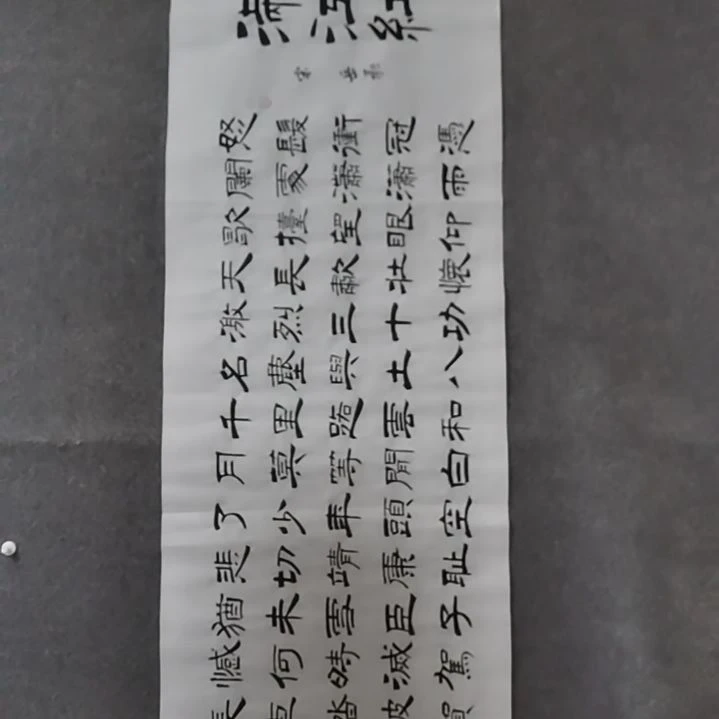 滿江紅
宋 岳飛
怒髮衝冠憑
闌處瀟瀟雨
歇擡望眼仰
天長歗壯懷
激烈三十功
名塵與土八
千里路雲和
月莫等閒白
了少年頭空
悲切靖康耻
猶未雪臣子
憾何時滅駕
長車踏破賀